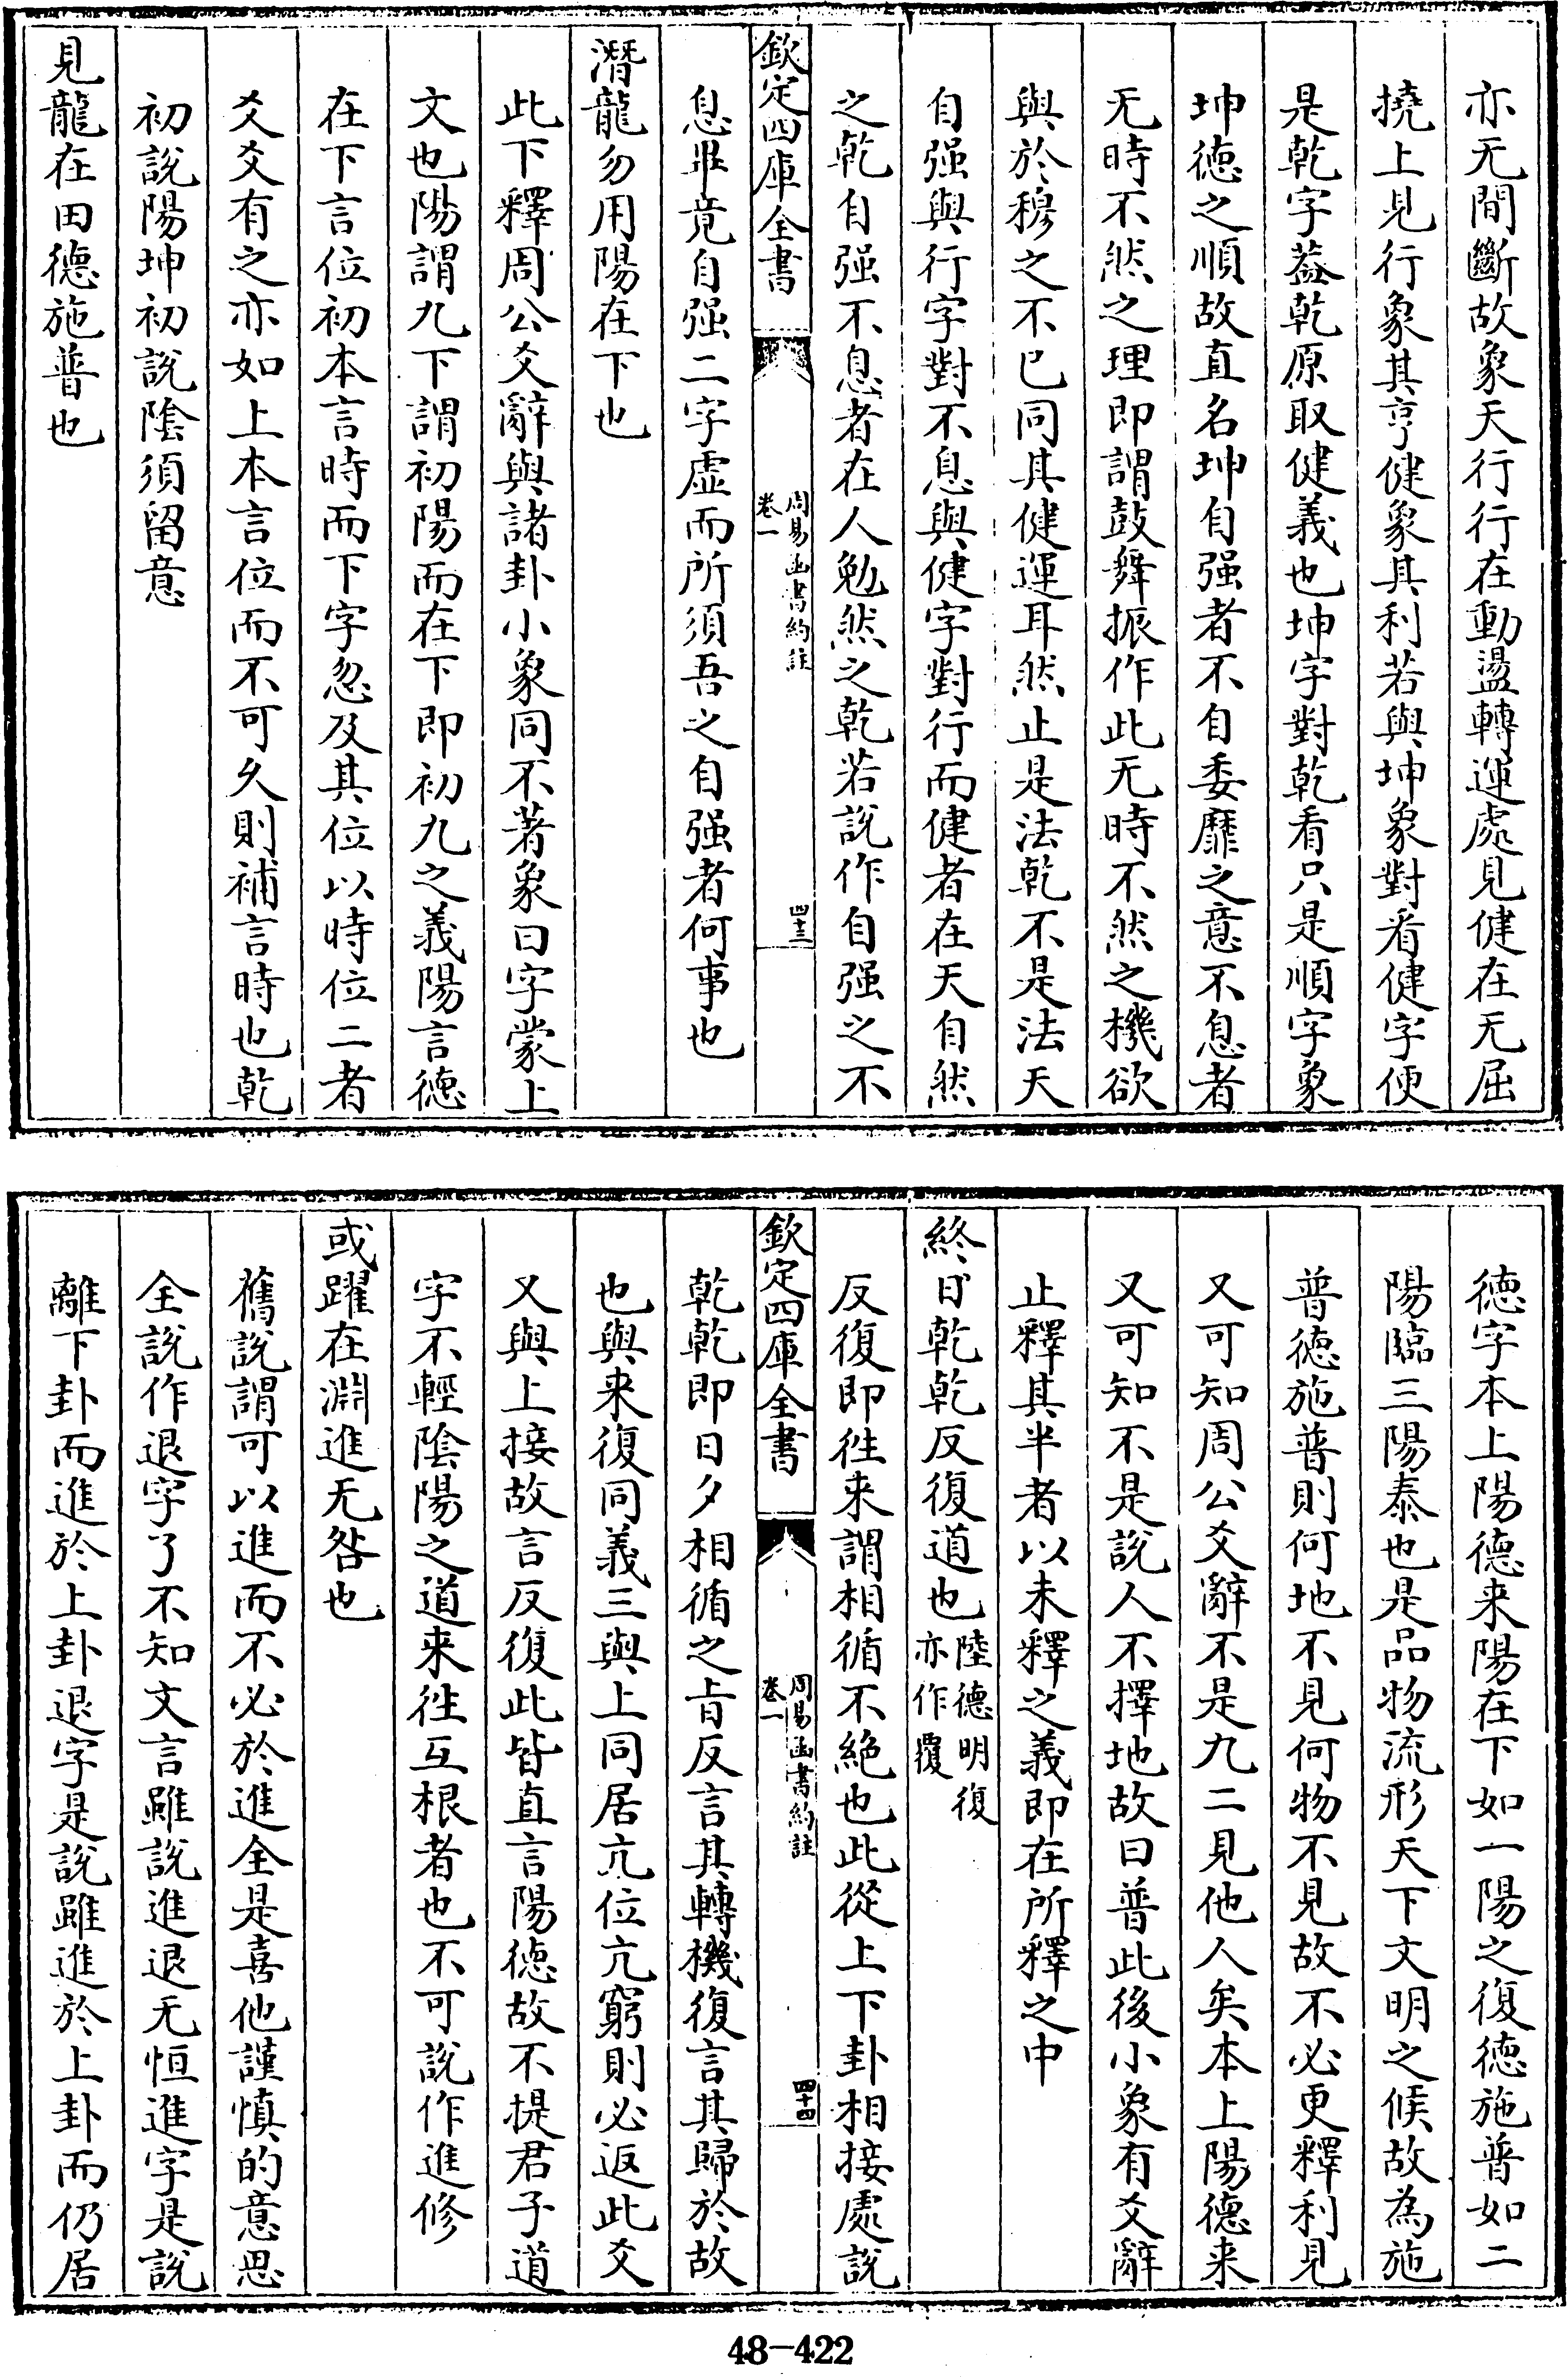 亦无間斷故象天行行在動盪轉運處見健在无屈
撓上見行象其亨健象其利若與坤象對看健字便
是乾字葢乾原取健義也坤字對乾看只是順字象
坤徳之順故直名坤自强者不自委靡之意不息者
无時不然之理即謂鼓舞振作此无時不然之機欲
與於穆之不已同其健運耳然止是法乾不是法天
自强與行字對不息與健字對行而健者在天自然
之乾自强不息者在人勉然之乾若說作自强之不
欽定四庫全書
周易函書約註
卷一
四十三
息畢竟自强二字虚而所須吾之自强者何事也
潛龍勿用陽在下也
此下釋周公爻辭與諸卦小象同不著象曰字蒙上
文也陽謂九下謂初陽而在下即初九之義陽言徳
在下言位初本言時而下字忽及其位以時位二者
爻爻有之亦如上本言位而不可久則補言時也乾
初說陽坤初說陰須留意
見龍在田德施普也
德字本上陽德来陽在下如一陽之復徳施普如二
陽臨三陽泰也是品物流形天下文明之候故為施
普徳施普則何地不見何物不見故不必更釋利見
又可知周公爻辭不是九二見他人矣本上陽德来
又可知不是說人不擇地故曰普此後小象有爻辭
止釋其半者以未釋之義即在所釋之中
終日乾乾反復道也陸德明復亦作覆
反復即徃来謂相循不絶也此從上下卦相接處說
欽定四庫全書
周易函書約註
卷一
四十四
乾乾即日夕相循之㫖反言其轉機復言其歸於故
也與来復同義三與上同居亢位亢窮則必返此爻
又與上接故言反復此皆直言陽德故不提君子道
字不輕陰陽之道来徃互根者也不可說作進修
或躍在淵進无咎也
舊說謂可以進而不必於進全是喜他謹慎的意思
全說作退字了不知文言雖說進退无恒進字是說
離下卦而進於上卦退字是說雖進於上卦而仍居
48-422